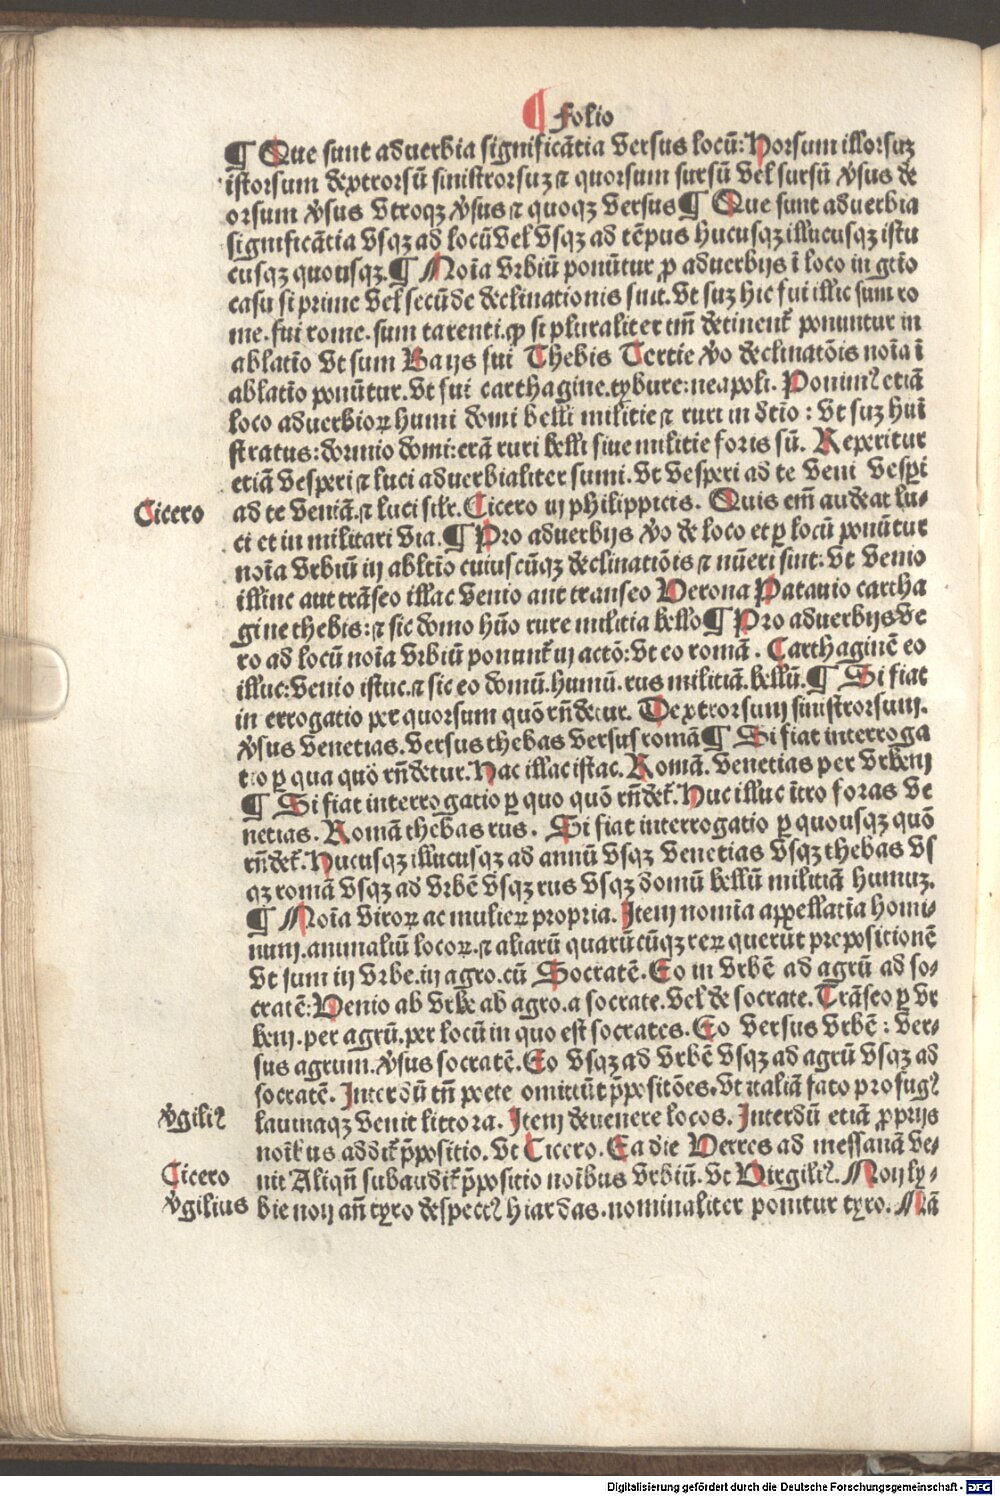 ¶ Folio
¶ Que sunt aduerbia significātia versus locū: Horsum illorsuꝫ
istorsum dextrorsū sinistrorsuꝫ ⁊ quorsum sursū vel sursū v̓sus de
orsum v̓sus vtroqꝫ v̓sus ⁊ quoqꝫ versus ¶ Que sunt aduerbia
significātia vsqꝫ ad locū vel vsqꝫ ad tēpus hucusqꝫ illucusqꝫ istu
cusqꝫ quousqꝫ. ¶ Noīa vrbiū ponūtur ꝓ aduerbijs ī loco in gtīo
casu si prime vel secūde declinationis sint. vt suꝫ hic fui illic sum ro
me. fui rome. sum tarenti. ꝙ si pluraliter tm̄ detinent᷑ ponuntur in
ablatīo vt sum Baijs fui Thebis Tertie v̓o declinatōis noīa ī
ablatīo ponūtur. vt fui carthagine. tybure: neapoli. Ponimꝰ etiā
loco aduerbioꝝ humi domi belli militie ⁊ ruri in dtīo : vt suꝫ hui
stratus: dormio domi: erā ruri belli siue militie foris sū. Reperitur
etiā vesperi ⁊ luci aduerbialiter sumi. vt vesperi ad te veni vesꝑi
Cicero
ad te veniā. ⁊ luci silr̄. Cicero in philippicis. Quis em̄ audeat lu-
ci et in militari via. ¶ Pro aduerbijs v̓o de loco et ꝑ locū ponūtur
noīa vrbiū in abltīo cuiuscūqꝫ declinatiōis ⁊ nūeri sint: vt venio
illinc aut trāseo illac venio aut transeo Verona Patauio cartha
gine thebis: ⁊ sic domo hūo rure militia bello ¶ Pro aduerbijs ve
ro ad locū noīa vrbiū ponunt᷑ in actō: vt eo romā . Carthaginē eo
illuc: venio istuc. ⁊ sic eo domū. humū. rus militiā. bellū. ¶ Si fiat
in errogatio per quorsum quō rn̄detur. Dextrorsum sinistrorsum.
v̓sus venetias. versus thebas versus romā ¶ Si fiat interroga
tio ꝑ qua quō rn̄detur. Hac illac istac. Romā. venetias per vrbem
¶ Si fiat interrogatio ꝑ quo quō rn̄det᷑. Huc illuc ītro foras ve
netias. Romā thebas rus. Si fiat interrogatio ꝑ quousqꝫ quō
rn̄det᷑. Hucusqꝫ illucusqꝫ ad annū vsqꝫ venetias vsqꝫ thebas vs
qꝫ romā vsqꝫ ad vrbē vsqꝫ rus vsqꝫ domū bellū militiā humuꝫ.
¶ Noīa viroꝝ ac mulieꝝ propria. Item nomīa appellatīa homi-
num. animaliū locoꝝ. ⁊ aliarū quarūcūqꝫ reꝝ querūt prepositionē
vt sum in vrbe. in agro. cū Socratē. Eo in vrbē ad agrū ad so-
cratē: Venio ab vrbe ab agro. a socrate. vel de socrate. Trāseo ꝑ vr
bem. per agrū. per locū in quo est socrates. Eo versus vrbē : ver-
sus agrum. v̓sus socratē. Eo vsqꝫ ad vrbē vsqꝫ ad agrū vsqꝫ ad
socratē. Interdū tn̄ poete omittūt p̄positōes. vt italiā fato profugꝰ
v̓giliꝰ
lauinaqꝫ venit littora. Item deuenere locos. Interdū etiā ꝓprijs
noībus addit᷑ p̄positio. vt Cicero. Ea die Verres ad messanā ve-
Cicero
nit Aliqn̄ subaudit᷑ p̄positio noībus vrbiū. vt Virgiliꝰ. Non ly-
v̓gilius
bie non an̄ tyro despectꝰ hiardas. nominaliter ponitur tyro. Nā
Digitalisierung gefördert durch die Deutsche Forschungsgemeinschaft - DFG